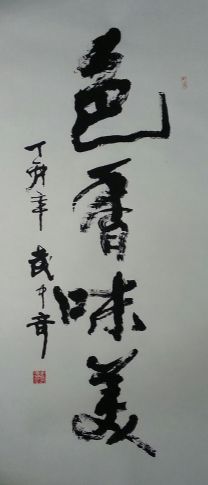 色香味美
丁卯年 武中奇